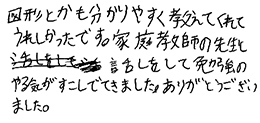 図形とかも分かりやすく教えてくれて
うれしかったです。家庭教師の先生と
話しをして勉強の
やる気がすこしでてきました。ありがとうござい
ました。